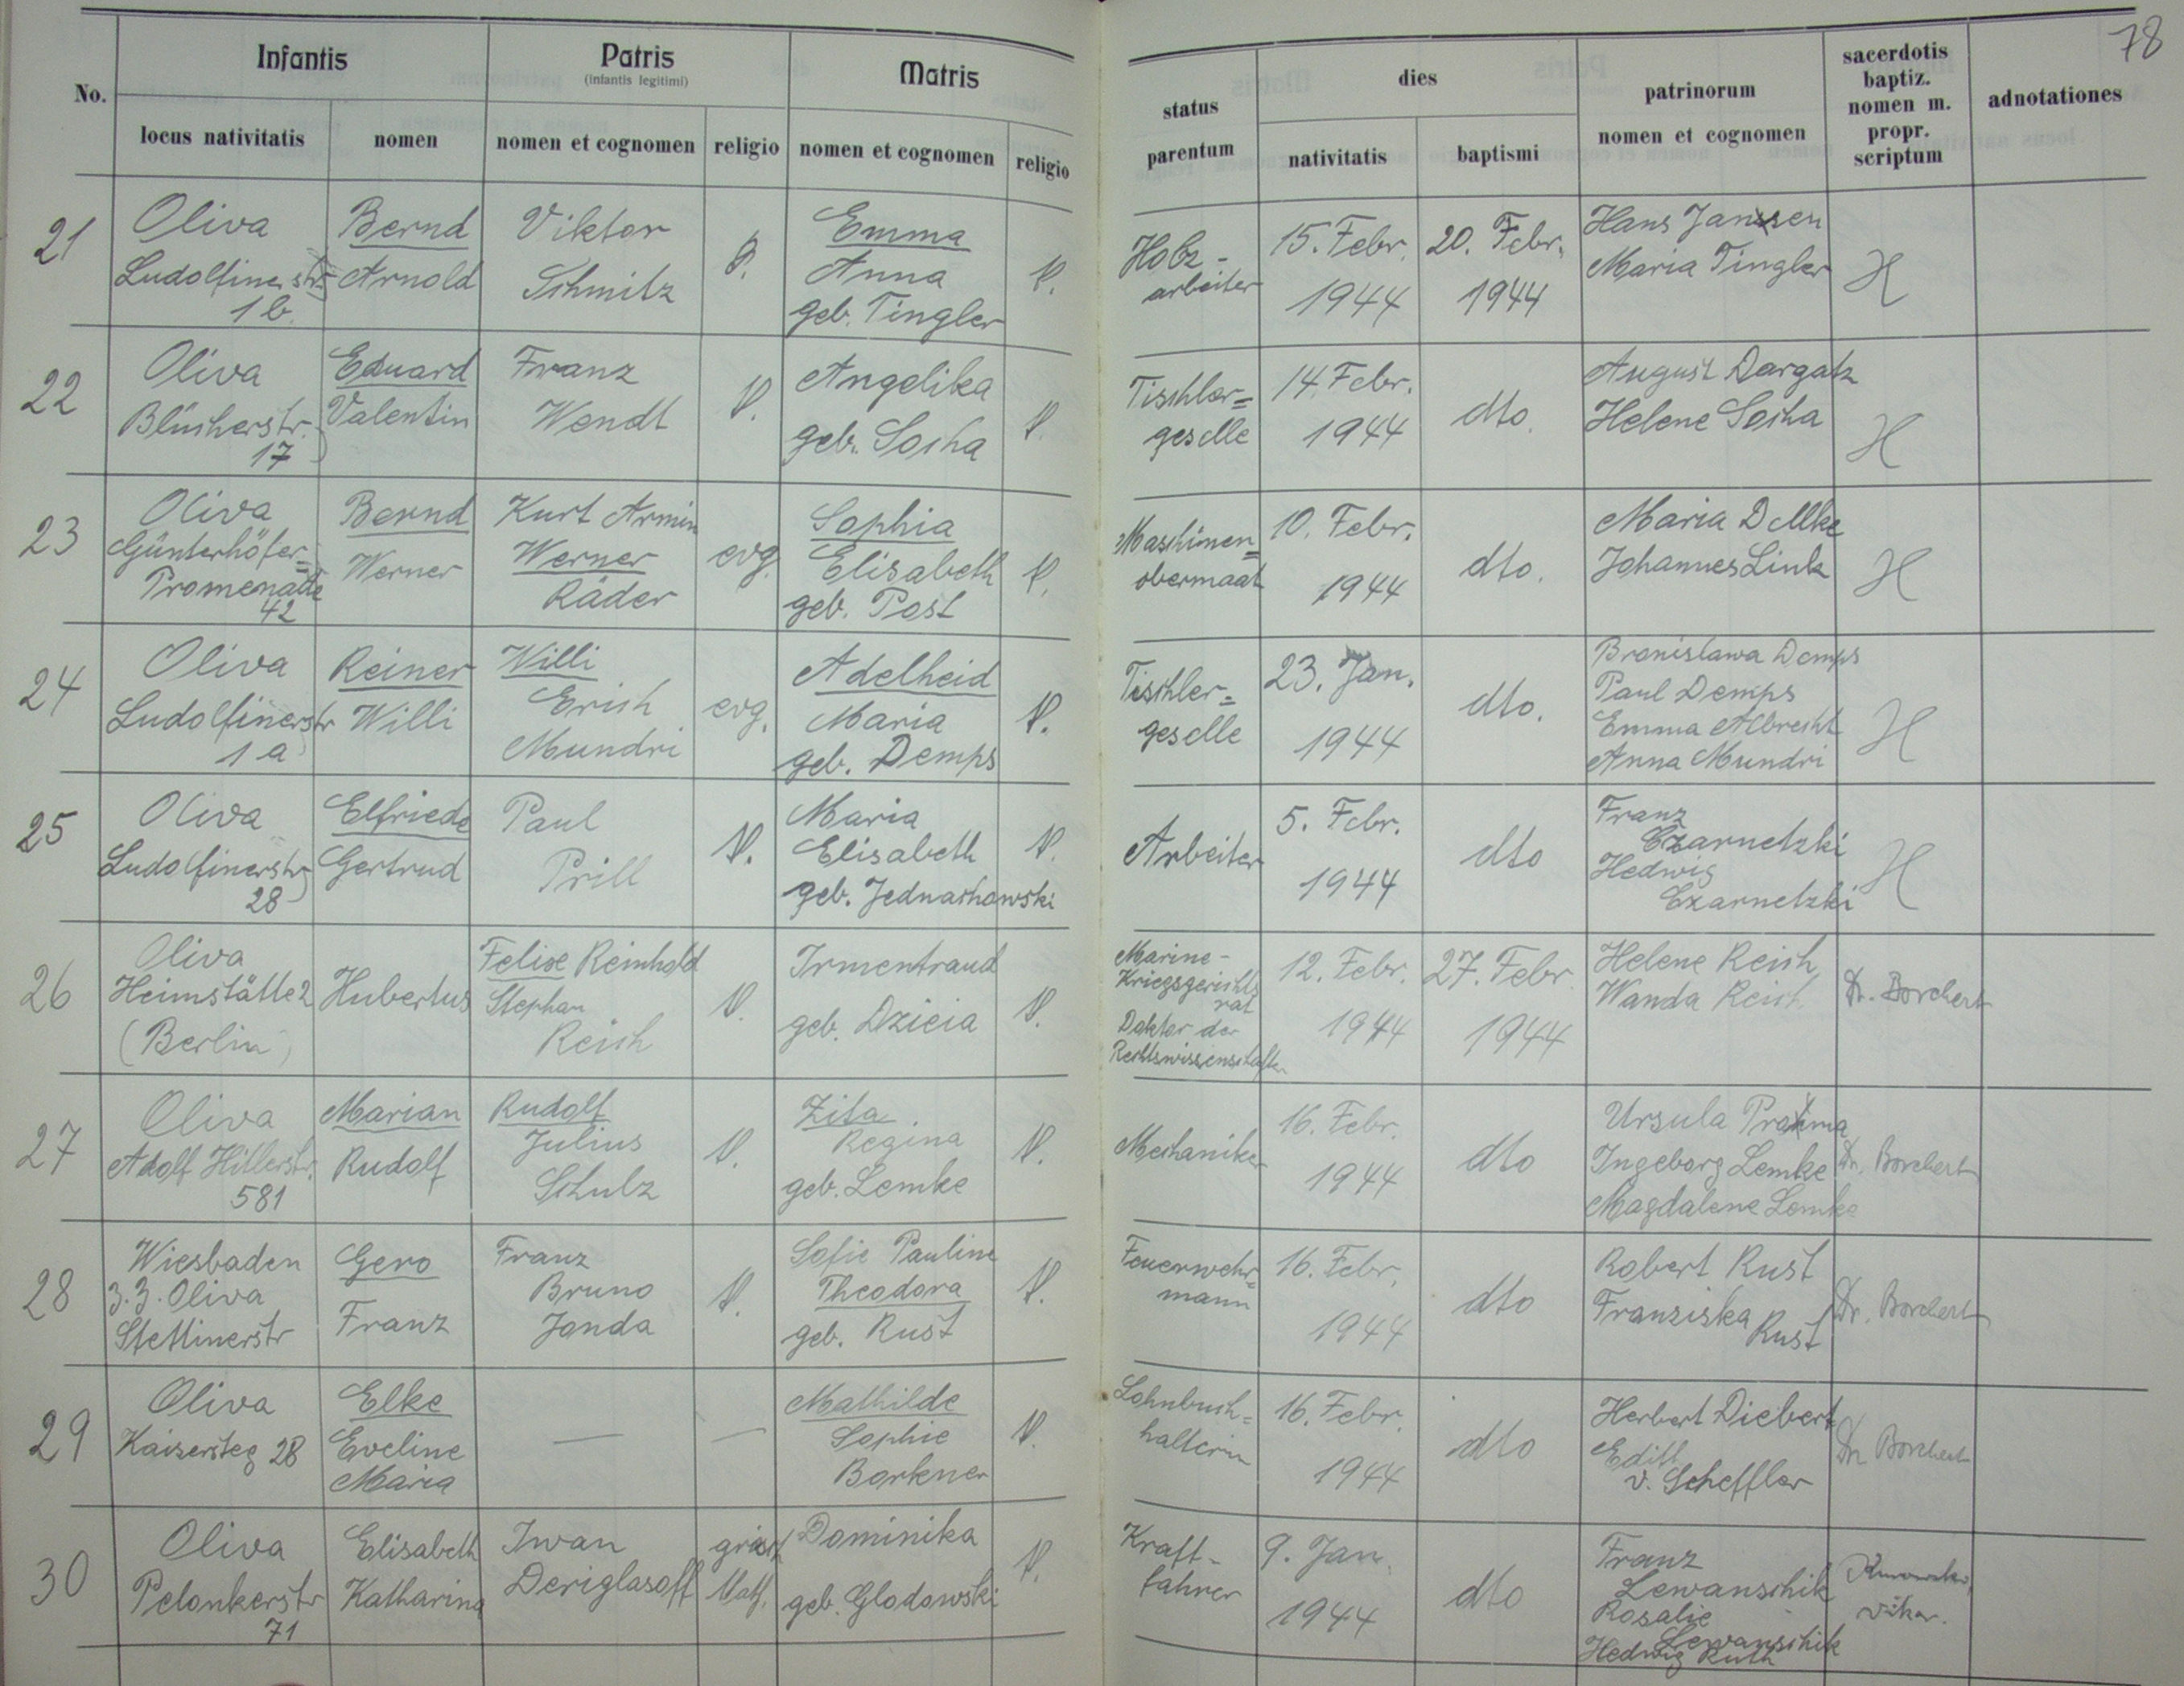 78
No.
Infantis
Patris
(infantis legitimi)
Matris
status parentum
dies
patrinorum
nomen et cognomen
sacerdotis
baptiz.
nomen m.
propr.
scriptum
adnotationes
locus nativitatis
nomen
nomen et cognomen
religio
nomen et cognomen
religio
nativitatis
baptismi
21
Oliva
Ludolfinerstr.
1b.
Bernd
Arnold
Viktor
Schmitz
Emma
Anna
geb. Tingler
Holz-
arbeiter
15. Febr.
1944
20. Febr.
1944
Hans Janssen
Maria Tingler
H
22
Oliva
Blücherstr.
17
Eduard
Valentin
Franz
Wendt
Angelika
geb. Socha
Tischler=
geselle
14. Febr.
1944
dto.
August Dargatz
Helene Socha
H
23
Oliva
Günterhöfer=
Promenade
42
Bernd
Werner
Kurt Armin
Werner
Räder
evg.
Sophia
Elisabeth
geb. Post
Maschinen=
obermaat
10. Febr.
1944
dto.
Maria Dellke
Johannes Link
H
24
Oliva
Ludolfinerstr
1a
Reiner
Willi
Willi
Erich
Mundri
evg.
Adelheid
Maria
geb. Demps
Tischler=
geselle
23. Jan.
1944
dto.
Bronislawa Demps
Paul Demps
Emma Albrecht
Anna Mundri
H
25
Oliva
Ludolfinerstr
28
Elfriede
Gertrud
Paul
Prill
Maria
Elisabeth
geb. Jednachowski
Arbeiter
5. Febr.
1944
dto
Franz
Czarnetzki
Hedwig
Czarnetzki
H
26
Oliva
Heimstätte 2
(Berlin)
Hubertus
Felix Reinhold
Stephan
Reich
Irmentraud
geb. Dzicia
Marine-
Kriegsgerichts
rat
Doktor der
Rechtswissenschaften
12. Febr.
1944
27. Febr.
1944
Helene Reich,
Wanda Reich
Dr. Borchert
27
Oliva
Adolf Hitlerstr.
581
Marian
Rudolf
Rudolf
Julius
Schulz
Zita
Regina
geb. Lemke
Mechaniker
16. Febr.
1944
dto
Ursula
Ingeborg Lemke
Magdalene Lemke
Dr. Borchert
28
Wiesbaden
z.Z. Oliva
Stettinerstr
Gero
Franz
Franz
Bruno
Janda
Sofie Pauline
Theodora
geb. Rust
Feuerwehr=
mann
16. Febr.
1944
dto
Robert Rust
Franziska Rust
Dr. Borchert
29
Oliva
Kaisersteg 28
Elke
Eveline
Maria
—
—
Mathilde
Sophie
Borkner
Lohnbuch=
halterin
16. Febr.
1944
dto
Herbert Diebert
Edith
v. Scheffler
Dr. Borchert
30
Oliva
Pelonkerstr
71
Elisabeth
Katharina
Iwan
Deriglasoff
griech
Kath.
Dominika
geb. Glodowski
Kraft-
fahrer
9. Jan.
1944
dto
Franz
Lewanschik
Rosalie
Lewanschik
Hedwig Ruth
Vikar.